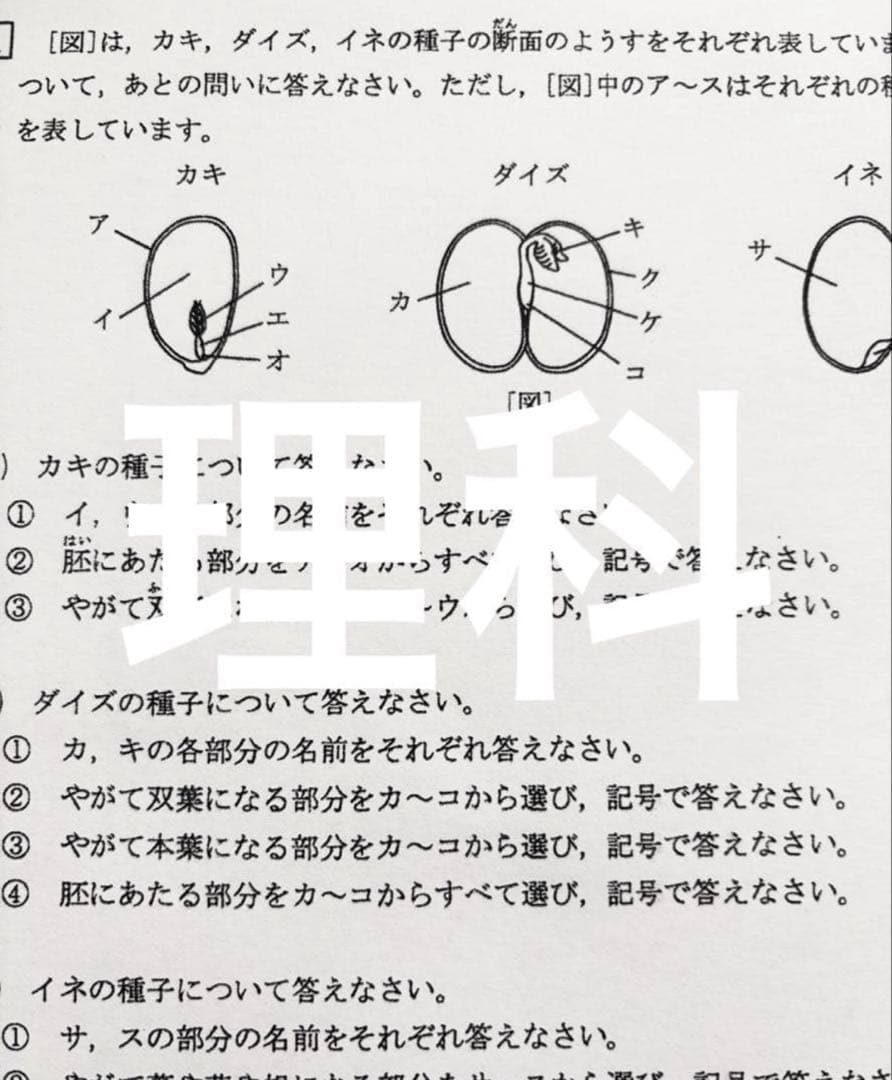 ［図］は，カキ，ダイズ，イネの種子の断面のようすをそれぞれ表していま
ついて，あとの問いに答えなさい。ただし，［図］中のア〜スはそれぞれの種
を表しています。
カキ
ダイズ
イネ
ア
イ
ウ
エ
オ
カ
キ
ク
ケ
コ
サ
［図］
理科
カキの種子について答えなさい。
① イ，の名前をそれぞれ答えなさ
② 胚にあたる部分を からすべ 記号で答えなさい。
③ やがて双 〜ウから選び，記号 なさい。
ダイズの種子について答えなさい。
① カ，キの各部分の名前をそれぞれ答えなさい。
② やがて双葉になる部分をカ〜コから選び，記号で答えなさい。
③ やがて本葉になる部分をカ〜コから選び，記号で答えなさい。
④ 胚にあたる部分をカ〜コからすべて選び，記号で答えなさい。
イネの種子について答えなさい。
① サ，スの部分の名前をそれぞれ答えなさい。